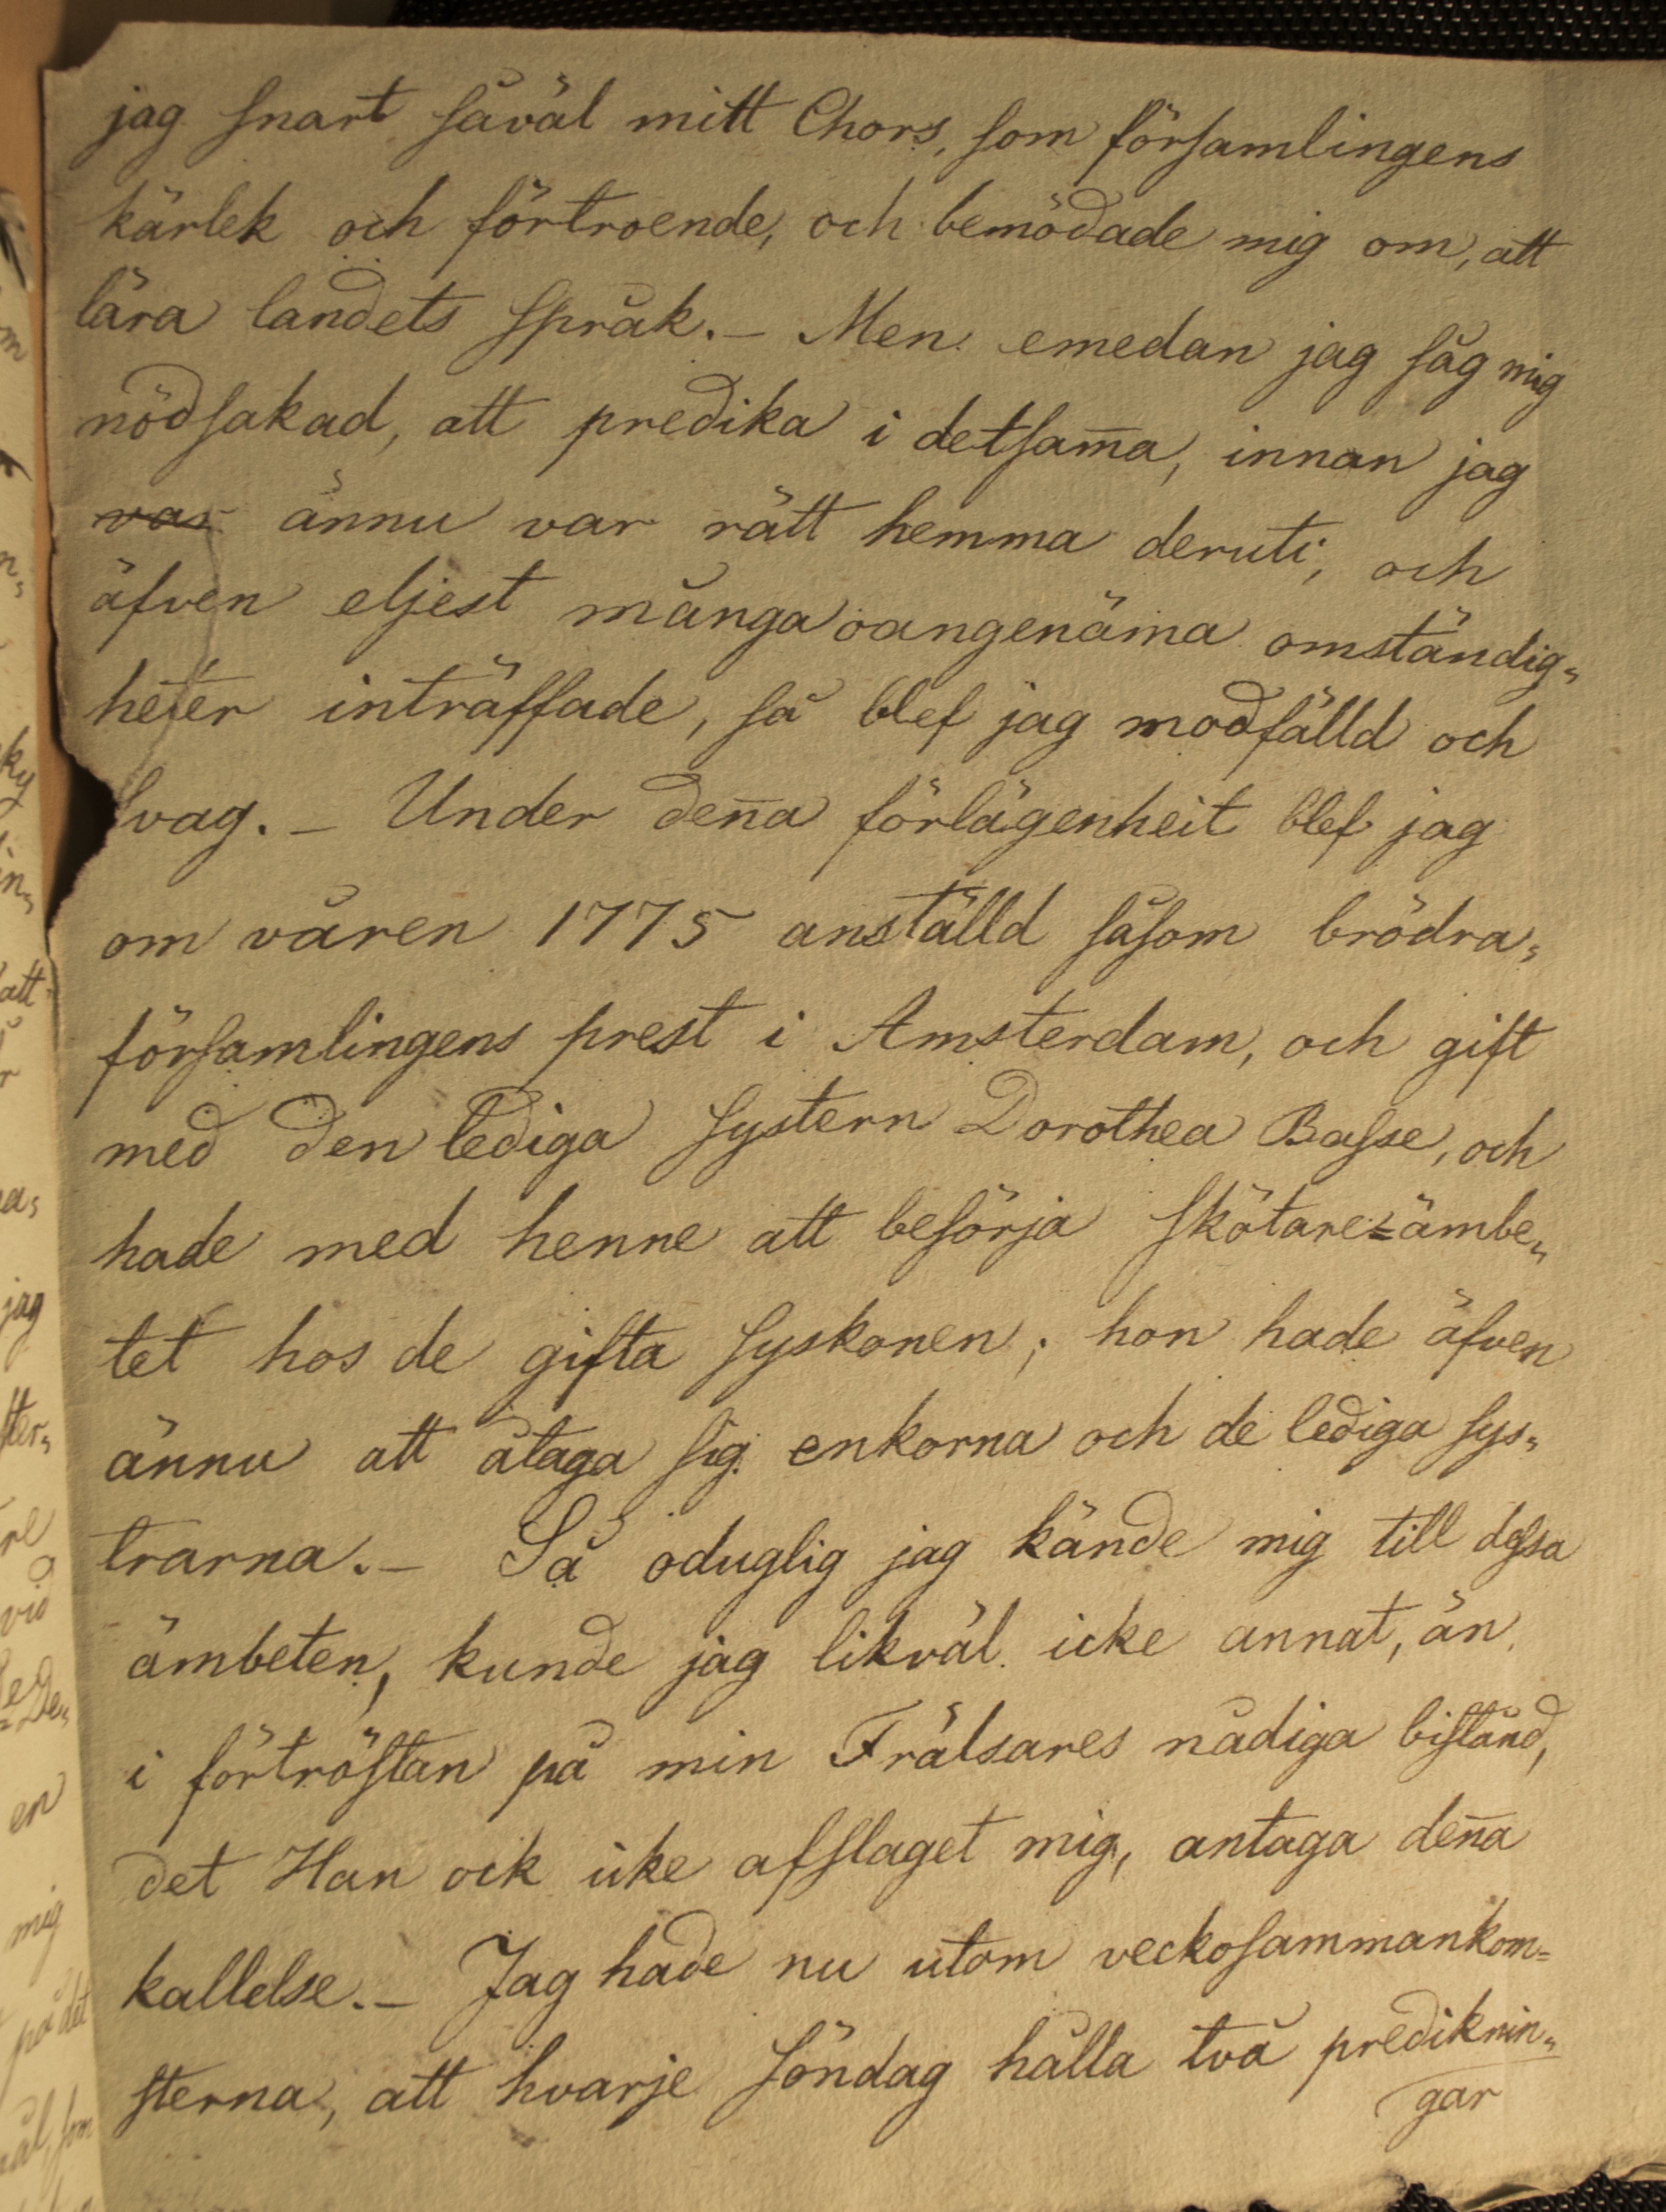 jag snart såväl mitt Chors, som församlingens
kärlek och förtroende, och bemödade mig om, att
lära landets språk. – Men emedan jag såg mig
nödsakad, att predika i detsam̅a, innan jag
var ännu var rätt hemma deruti, och
äfven eljest många oangenäma omständig„
heter inträffade, så blef jag modfälld och
svag. – Under den̅a förlägenheit blef jag
om våren 1775 anställd såsom brödra„
församlingens prest i Amsterdam, och gift
med den lediga systern Dorothea Basse, och
hade med henne att besörja skötare=ämbe„
tet hos de gifta syskonen; hon hade äfven
ännu att åtaga sig enkorna och de lediga sys„
trarna. – Så oduglig jag kände mig till dessa
ämbeten, kunde jag likväl icke annat, än
i förtröstan på min Frälsares nådiga bistånd,
det Han ock icke afslaget mig, antaga den̅a
kallelse. – Jag hade nu utom veckosammankom=
sterna, att hvarje söndag hålla två prediknin„
gar